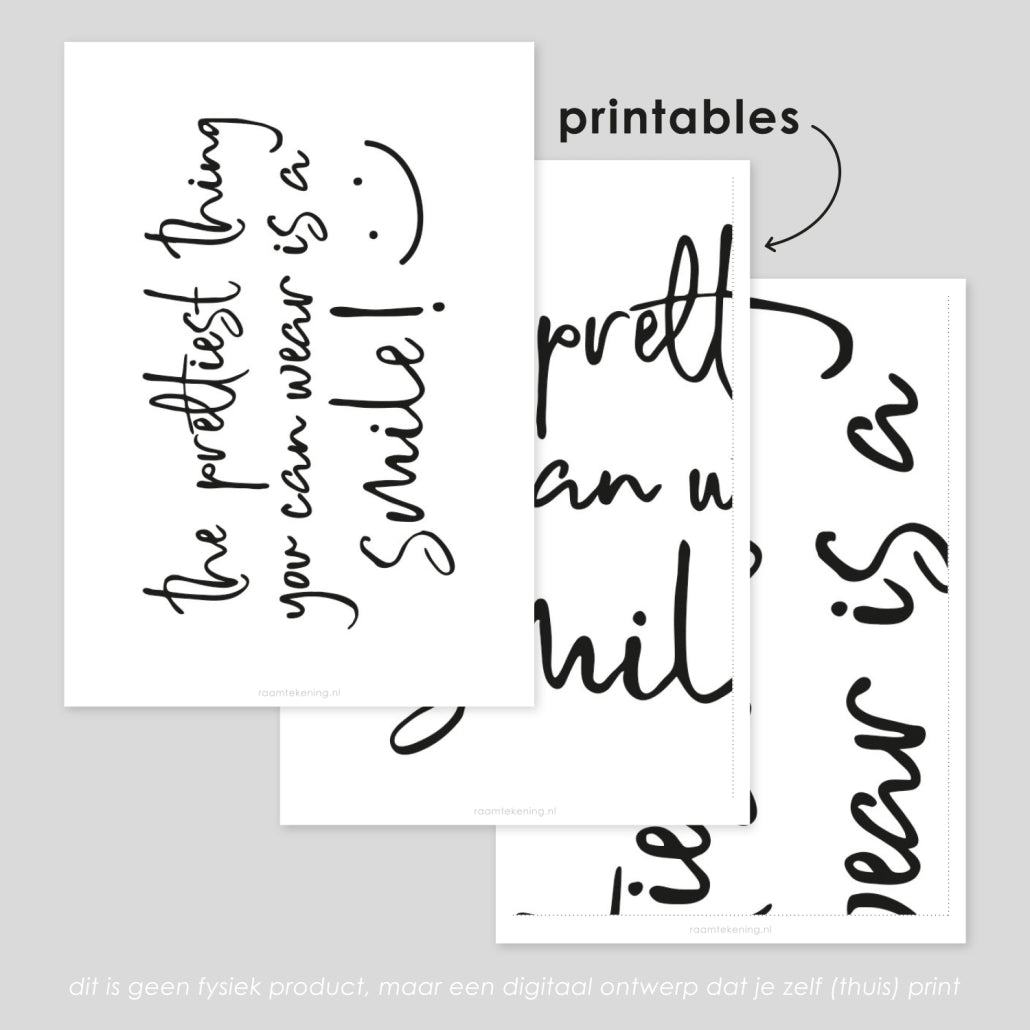 printables
the prettiest thing
you can wear is a
smile! :)
raamtekening.nl
prett
an w
mil
raamtekening.nl
a
is
wear
tie
raamtekening.nl
dit is geen fysiek product, maar een digitaal ontwerp dat je zelf (thuis) print